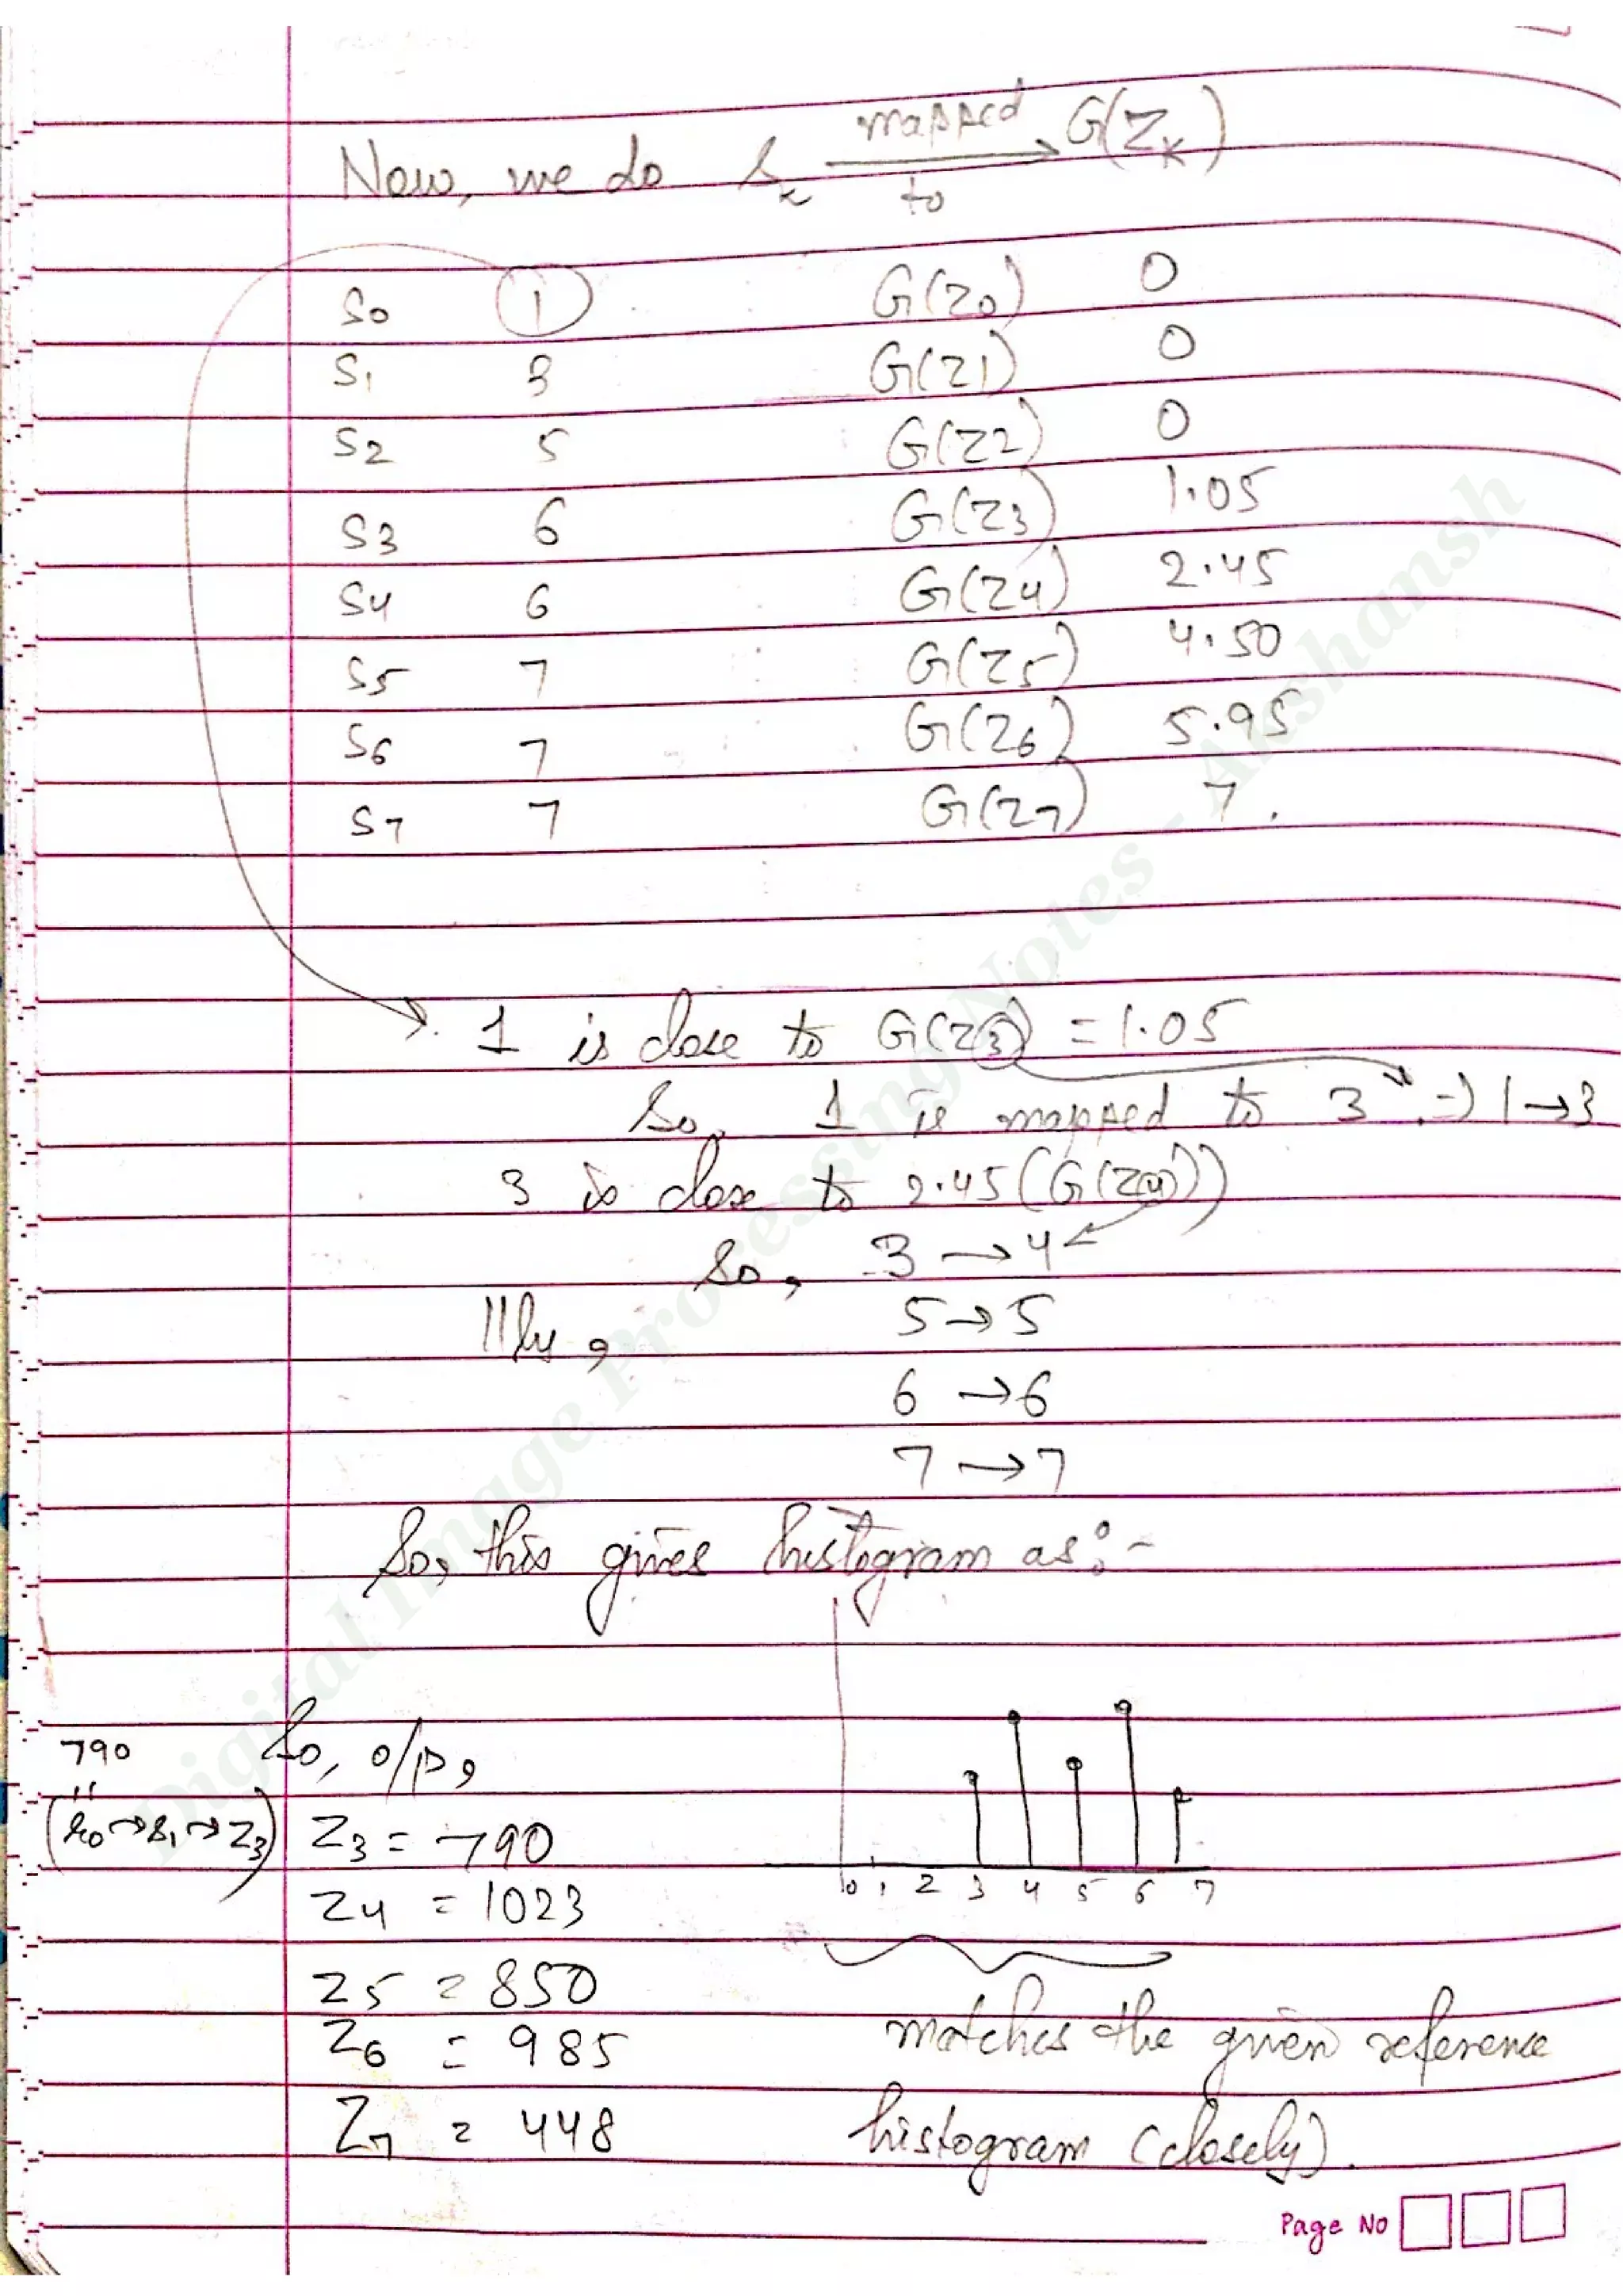 Now, we do Sk mapped to → G(Zk)
S0 1 G(Z0) 0
S1 3 G(Z1) 0
S2 5 G(Z2) 0
S3 6 G(Z3) 1.05
S4 6 G(Z4) 2.45
S5 7 G(Z5) 4.50
S6 7 G(Z6) 5.95
S7 7 G(Z7) 7.
→ 1 is close to G(Z3) = 1.05
So, 1 is mapped to 3 ⇒ 1→3
3 is close to 2.45 (G(Z4))
So, 3 → 4
||ly, 5 → 5
6 → 6
7 → 7
So, this gives histogram as:-
790 So, o/p,
(r0→s1→Z3) Z3 = 790
0 1 2 3 4 5 6 7
Z4 = 1023
Z5 = 850
Z6 = 985 matches the given reference
Z7 = 448 histogram (closely).
Page No
Digital Image Processing Notes - Akshansh